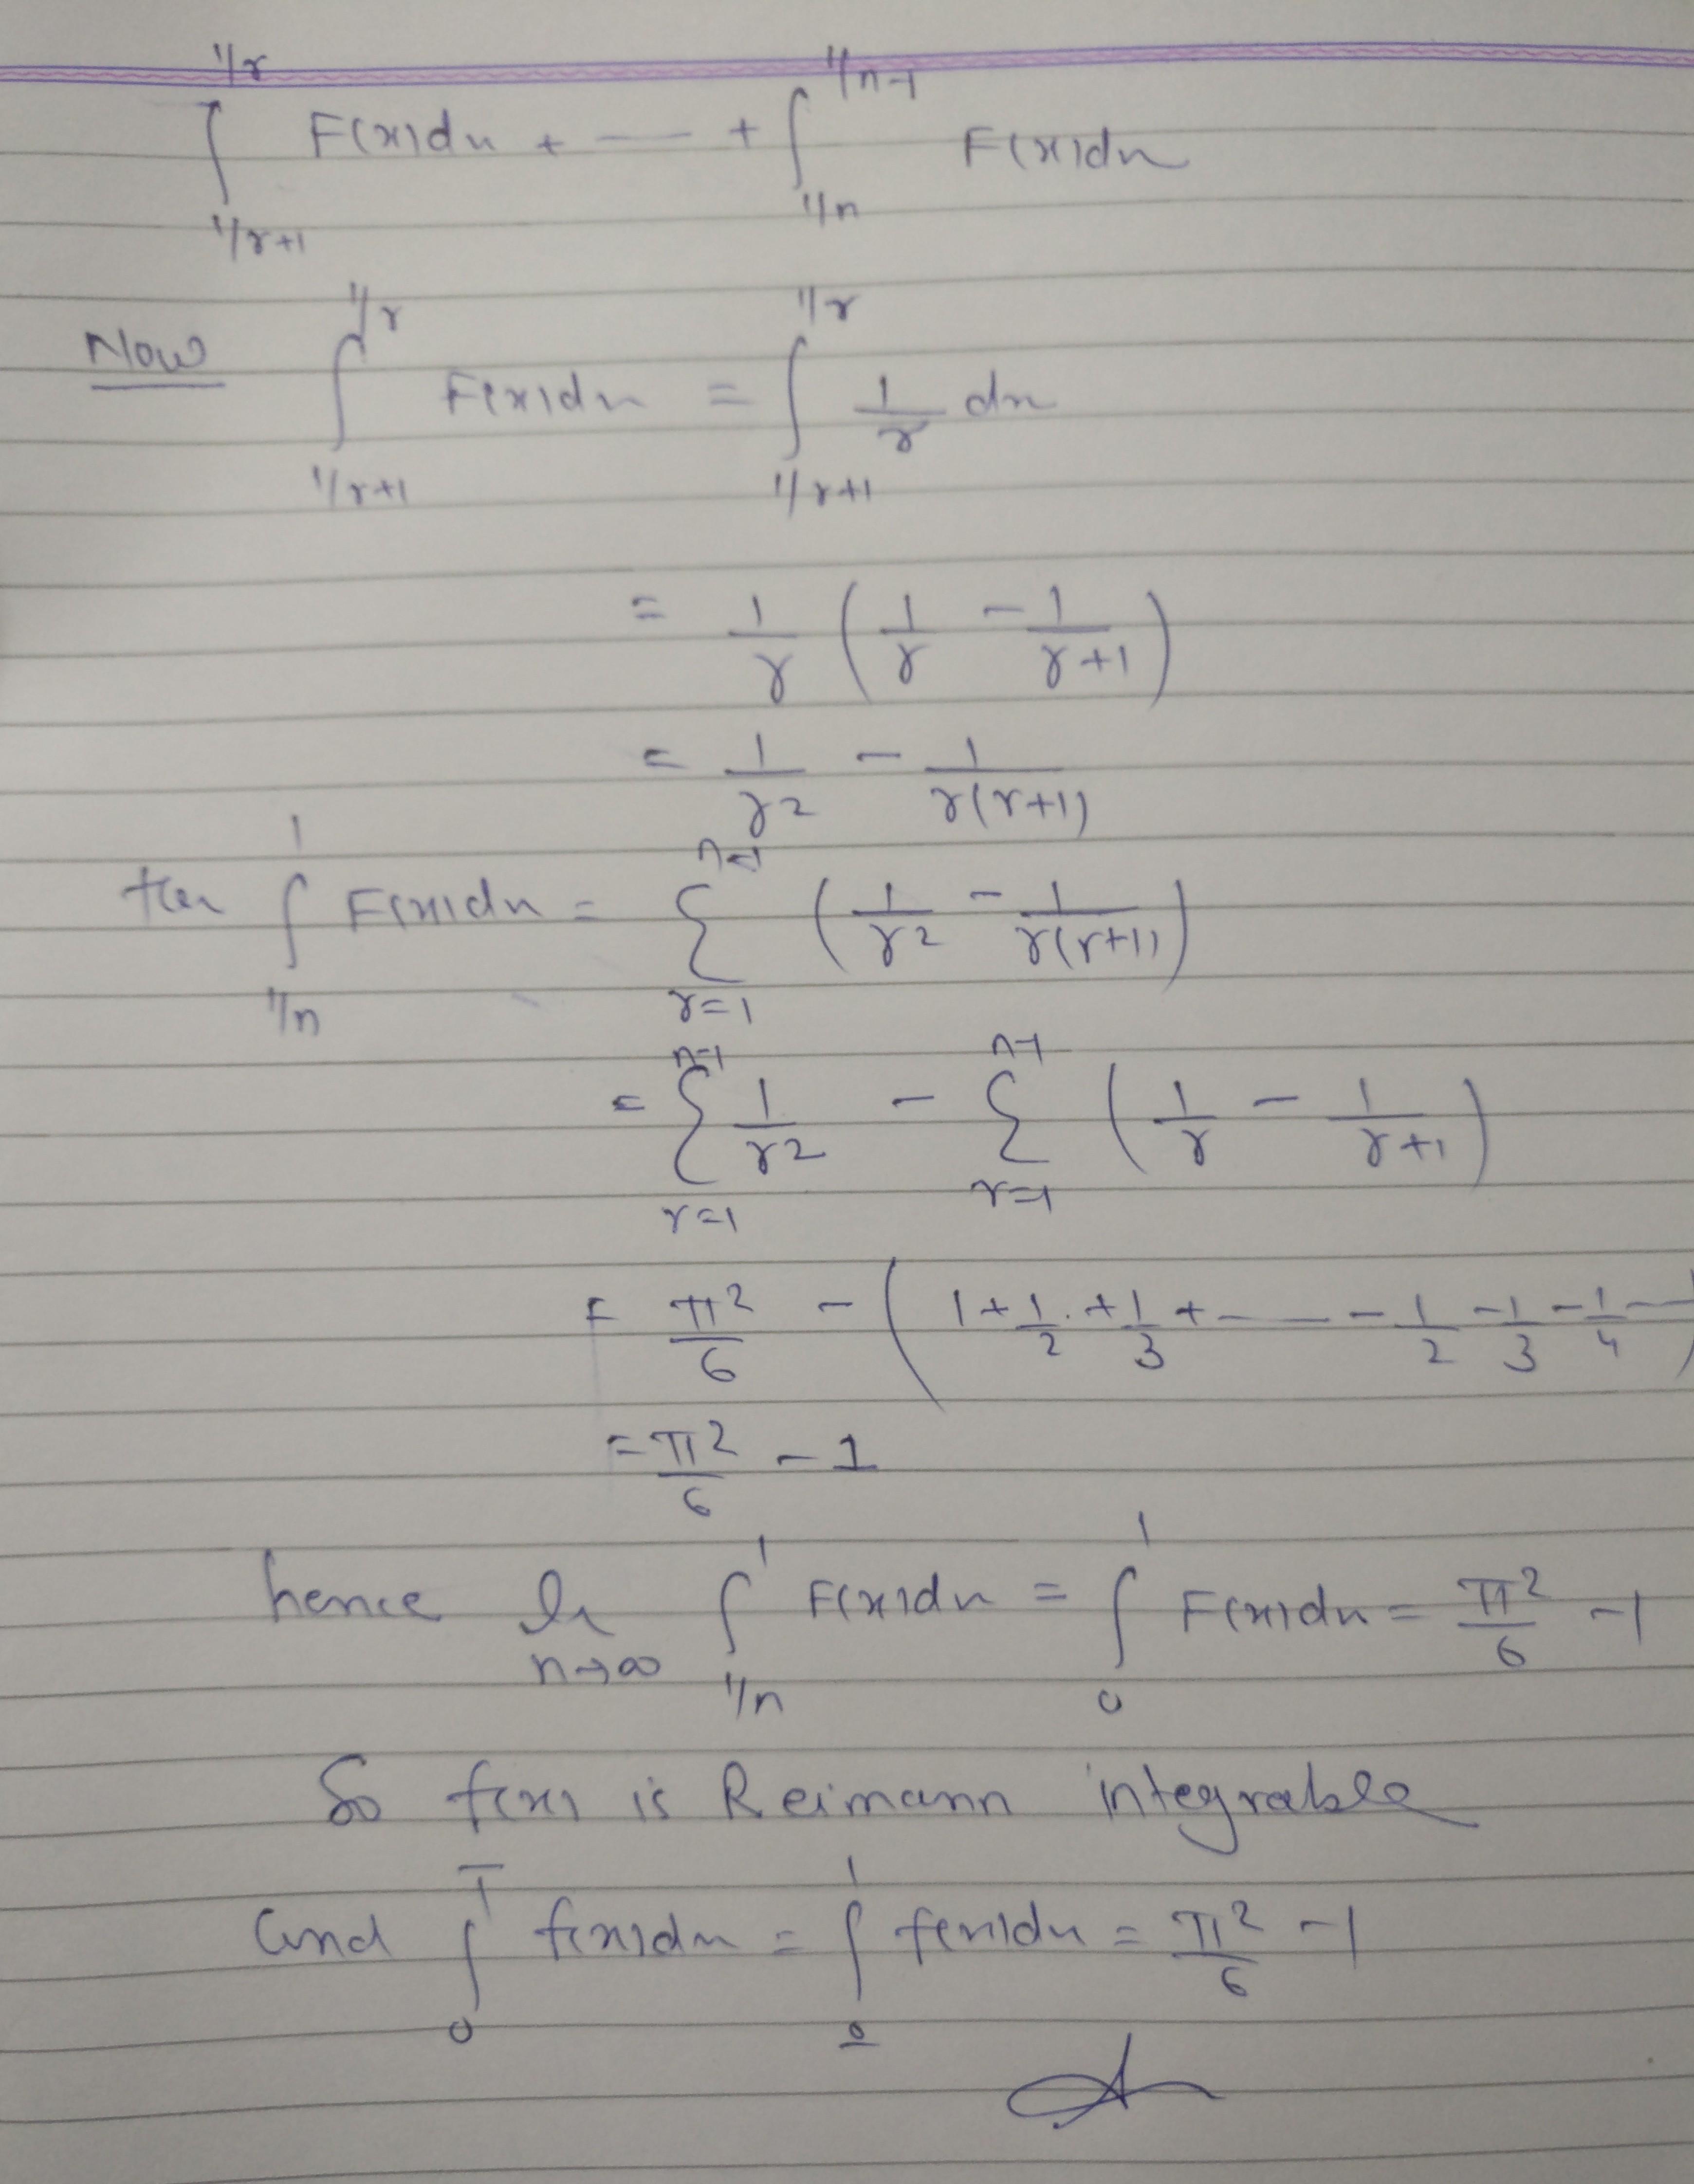 ∫_{1/r+1}^{1/r} F(x)dx + — + ∫_{1/n}^{1/n-1} F(x)dx
Now ∫_{1/r+1}^{1/r} F(x)dx = ∫_{1/r+1}^{1/r} 1/r dx
= 1/r (1/r - 1/r+1)
= 1/r2 - 1/r(r+1)
then ∫_{1/n}^{1} F(x)dx = Σ_{r=1}^{n-1} (1/r2 - 1/r(r+1))
= Σ_{r=1}^{n-1} 1/r2 - Σ_{r=1}^{n-1} (1/r - 1/r+1)
= π²/6 - (1 + 1/2 + 1/3 + —— - 1/2 - 1/3 - 1/4 —)
= π²/6 - 1
hence lim_{n→∞} ∫_{1/n}^{1} F(x)dx = ∫_{0}^{1} F(x)dx = π²/6 - 1
So f(x) is Reimann integrable
and ∫_{0}^{1̅} f(x)dx = ∫_{0̲}^{1} f(x)dx = π²/6 - 1